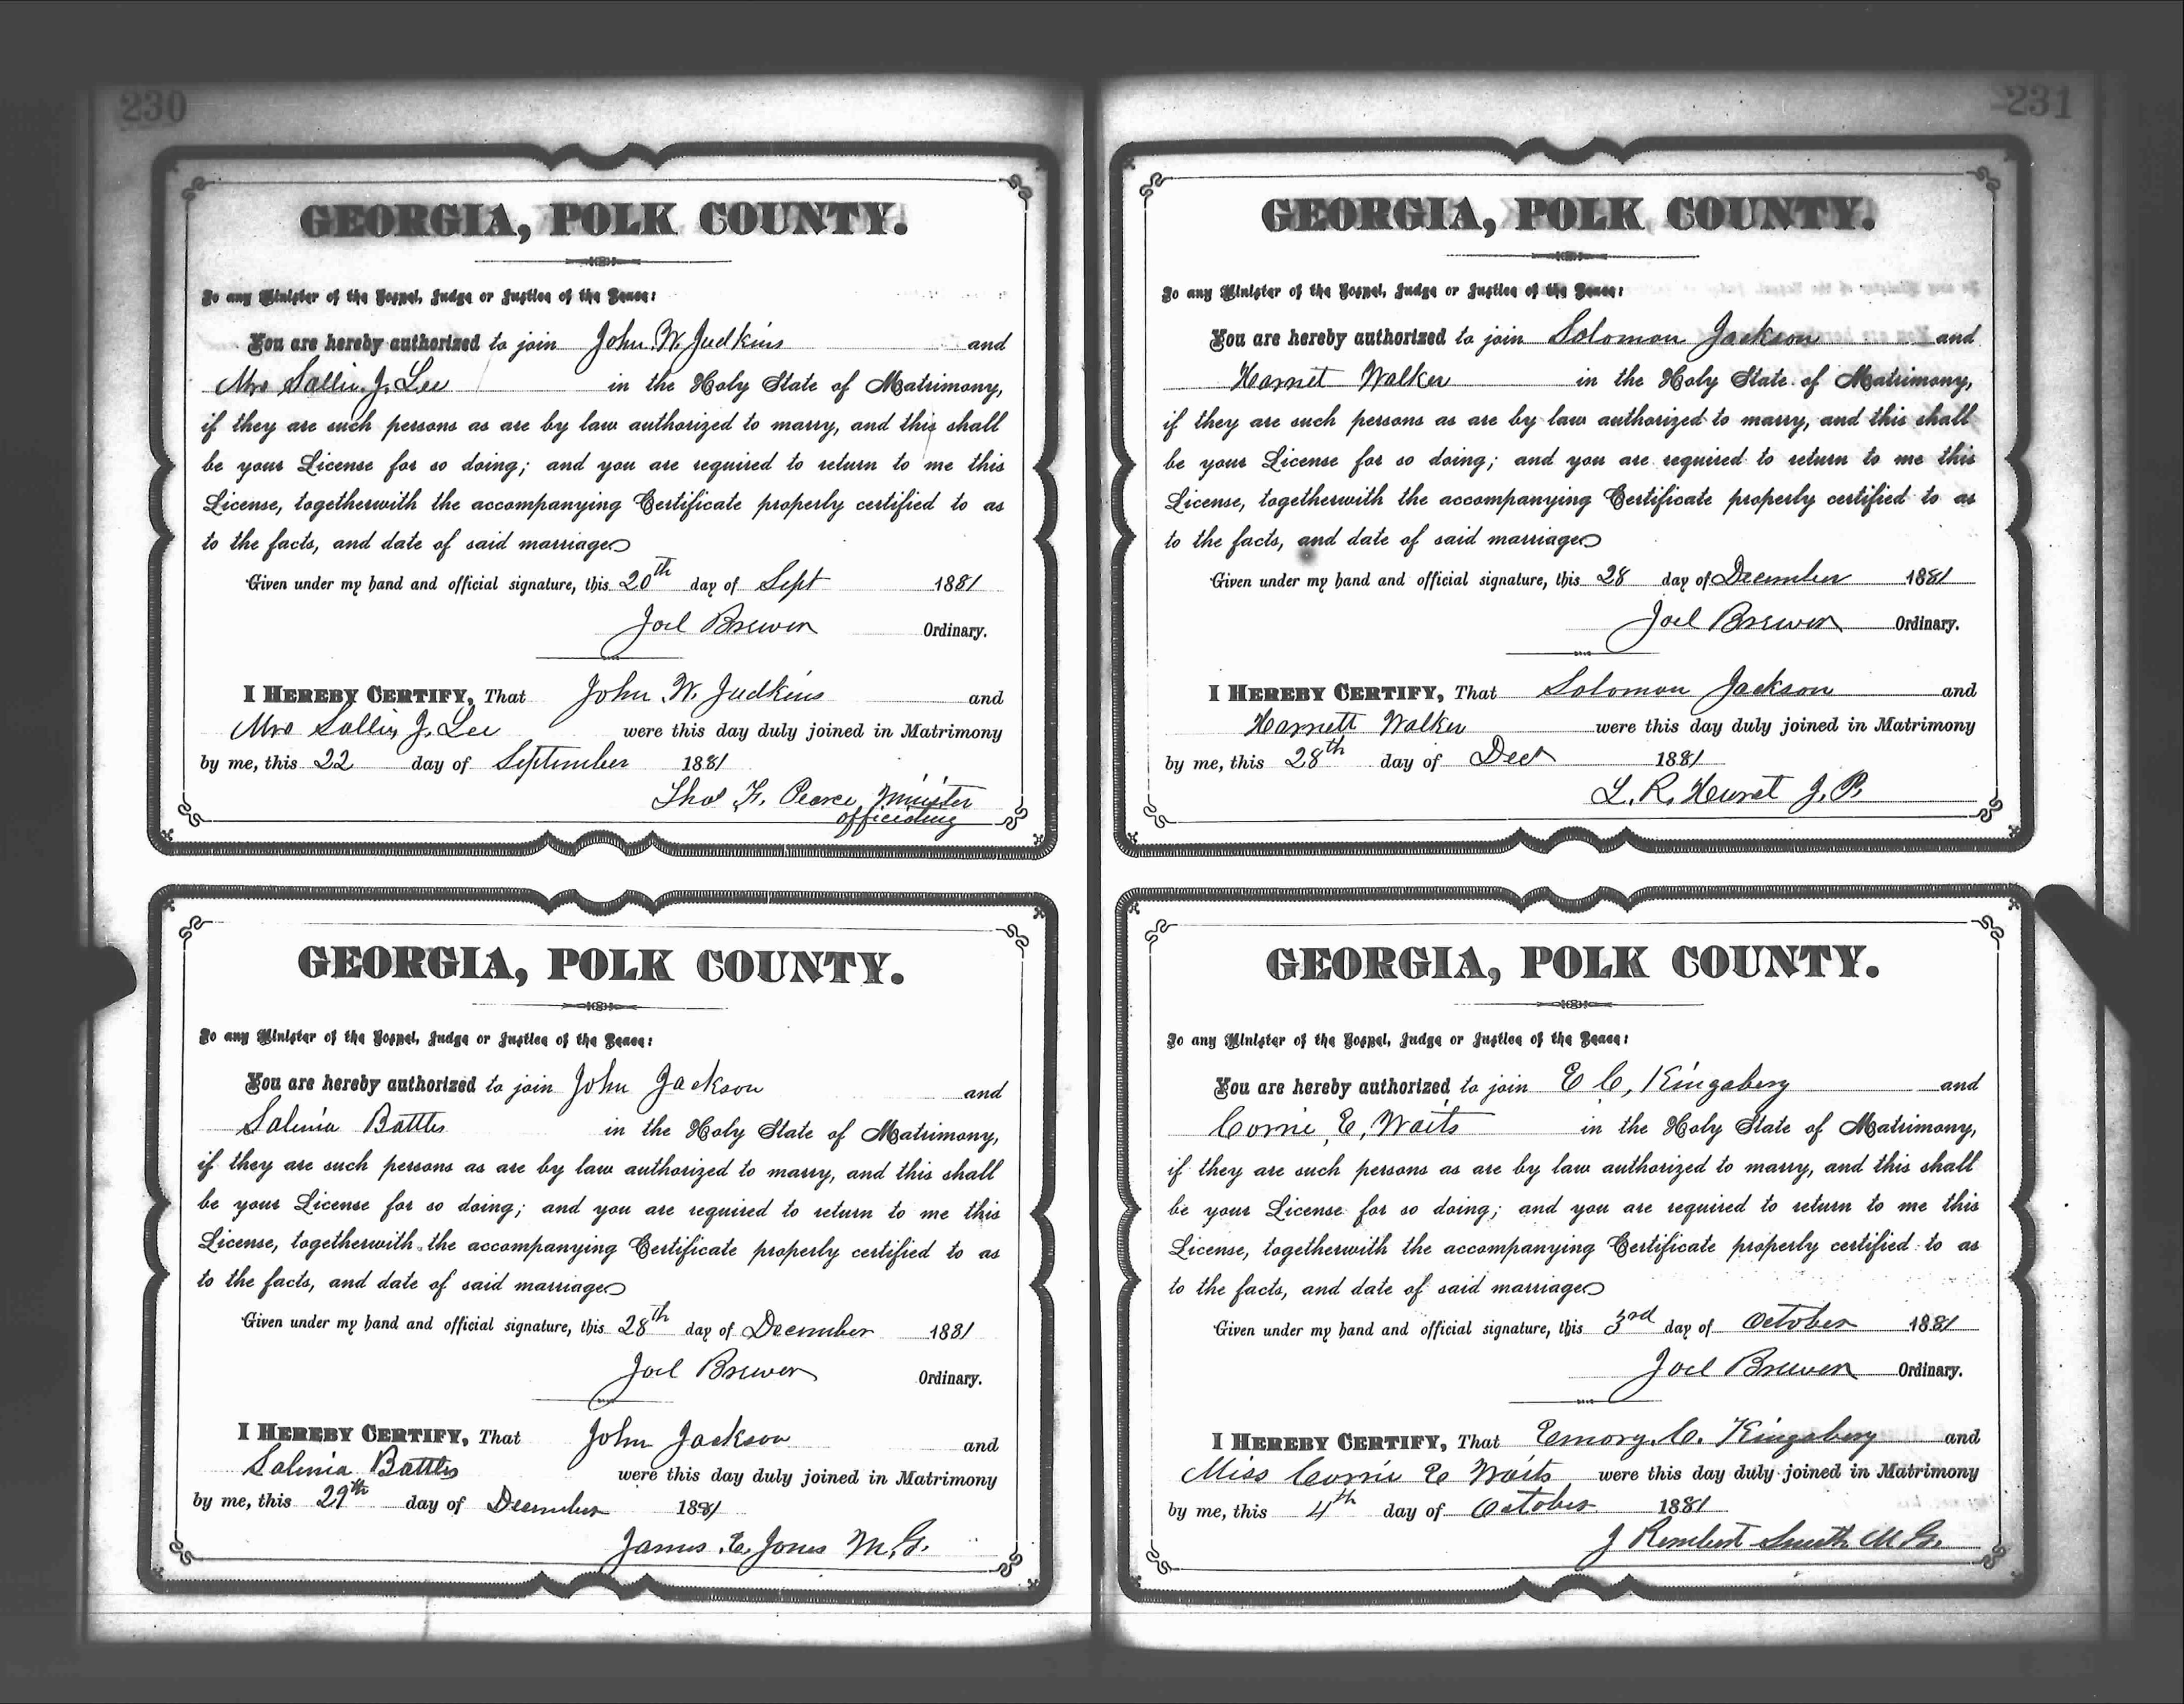 230
GEORGIA, POLK COUNTY.
To any Minister of the Gospel, Judge or Justice of the Peace:
You are hereby authorized to join John W. Judkins and
Mrs Sallie J. Lee in the Holy State of Matrimony,
if they are such persons as are by law authorized to marry, and this shall
be your License for so doing; and you are required to return to me this
License, togetherwith the accompanying Certificate properly certified to as
to the facts, and date of said marriage
Given under my hand and official signature, this 20th day of Sept 1881
Joel Brewer Ordinary.
I HEREBY CERTIFY, That John W. Judkins and
Mrs Sallie J. Lee were this day duly joined in Matrimony
by me, this 22 day of September 1881
Thos F. Pearce, Minister
officiating
GEORGIA, POLK COUNTY.
To any Minister of the Gospel, Judge or Justice of the Peace:
You are hereby authorized to join John Jackson and
Salenia Battles in the Holy State of Matrimony,
if they are such persons as are by law authorized to marry, and this shall
be your License for so doing; and you are required to return to me this
License, togetherwith the accompanying Certificate properly certified to as
to the facts, and date of said marriage
Given under my hand and official signature, this 28th day of December 1881
Joel Brewer Ordinary.
I HEREBY CERTIFY, That John Jackson and
Salenia Battles were this day duly joined in Matrimony
by me, this 29th day of December 1881
James E. Jones M.G.
231
GEORGIA, POLK COUNTY.
To any Minister of the Gospel, Judge or Justice of the Peace:
You are hereby authorized to join Solomon Jackson and
Harriet Walker in the Holy State of Matrimony,
if they are such persons as are by law authorized to marry, and this shall
be your License for so doing; and you are required to return to me this
License, togetherwith the accompanying Certificate properly certified to as
to the facts, and date of said marriage
Given under my hand and official signature, this 28 day of December 1881
Joel Brewer Ordinary.
I HEREBY CERTIFY, That Solomon Jackson and
Harriett Walker were this day duly joined in Matrimony
by me, this 28th day of Dec 1881
L. R. Hurst J.P.
GEORGIA, POLK COUNTY.
To any Minister of the Gospel, Judge or Justice of the Peace:
You are hereby authorized to join E C, Kingsbery and
Corrie, E, Waits in the Holy State of Matrimony,
if they are such persons as are by law authorized to marry, and this shall
be your License for so doing; and you are required to return to me this
License, togetherwith the accompanying Certificate properly certified to as
to the facts, and date of said marriage
Given under my hand and official signature, this 3rd day of October 1881
Joel Brewer Ordinary.
I HEREBY CERTIFY, That Emory. C. Kingsbery and
Miss Corrie E Waits were this day duly joined in Matrimony
by me, this 4th day of October 1881
J Rembert Smith M.G.